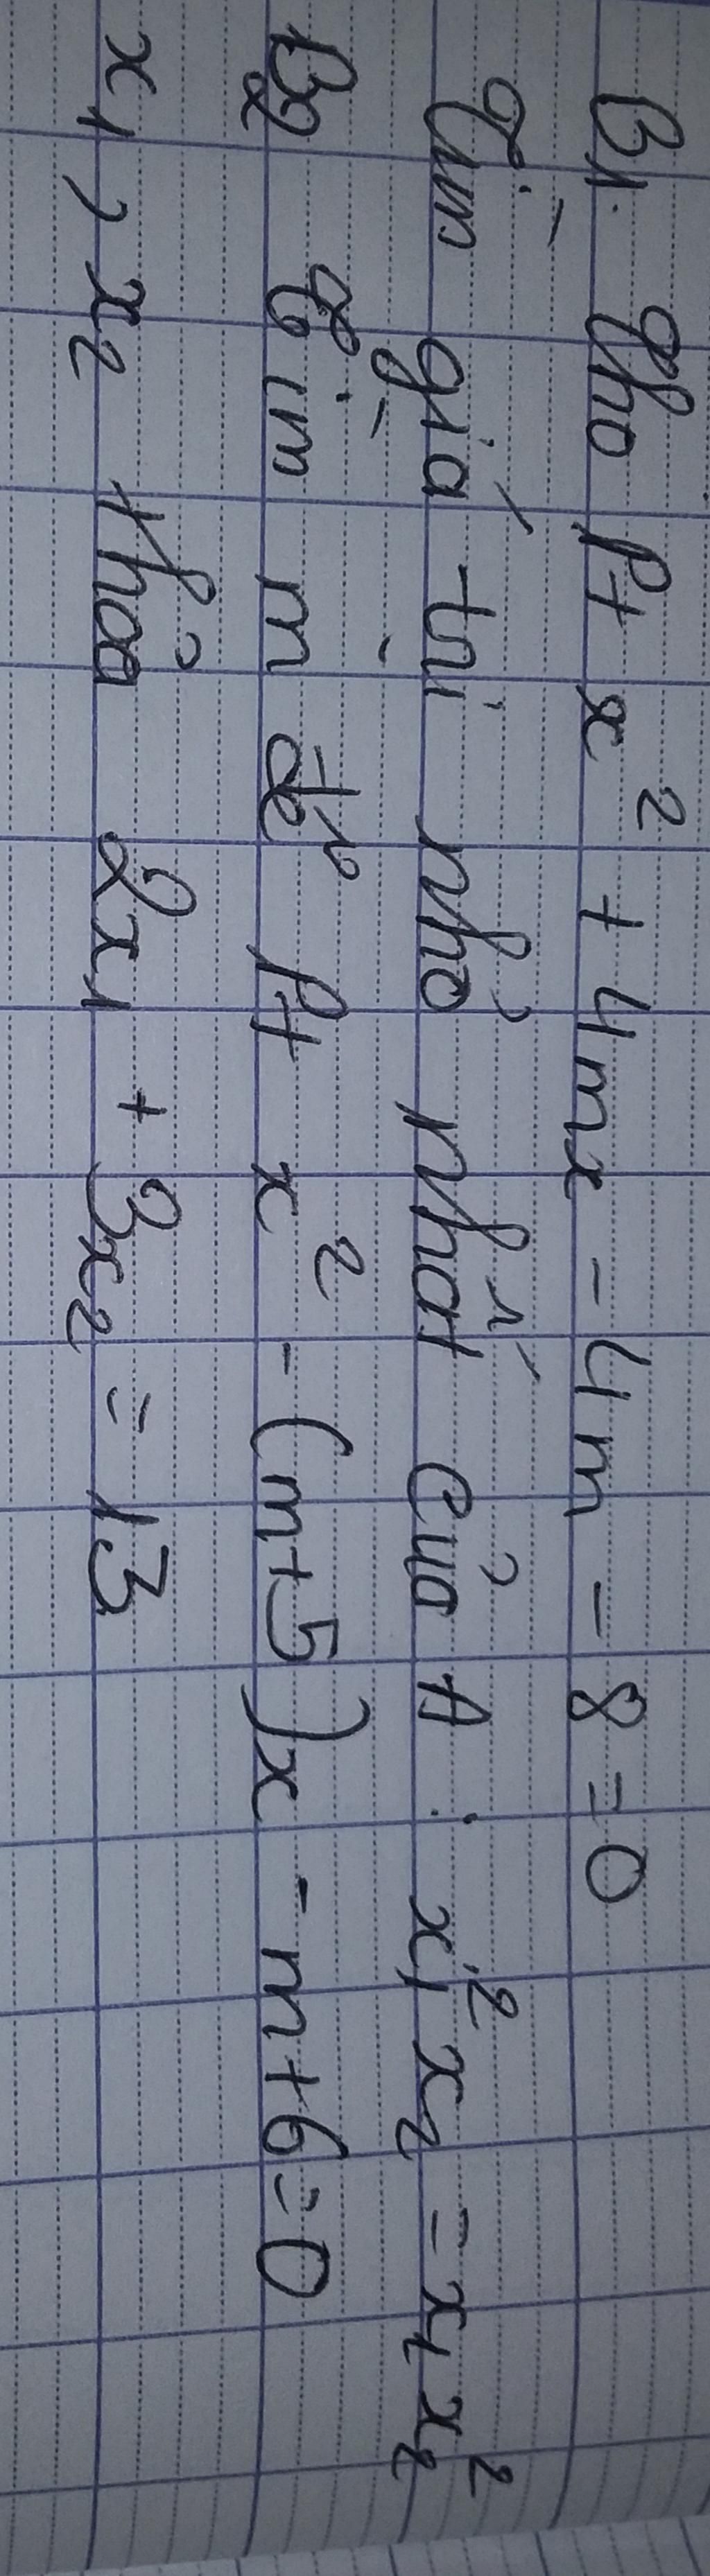 B1. Cho Pt x² + 4mx - 4m - 8 = 0
Tìm giá trị nhỏ nhất của A : x₁²x₂ = x₁x₂²
B2 Tìm m để Pt x² - (m+5)x - m + 6 = 0
x₁, x₂ thoả 2x₁ + 3x₂ = 13